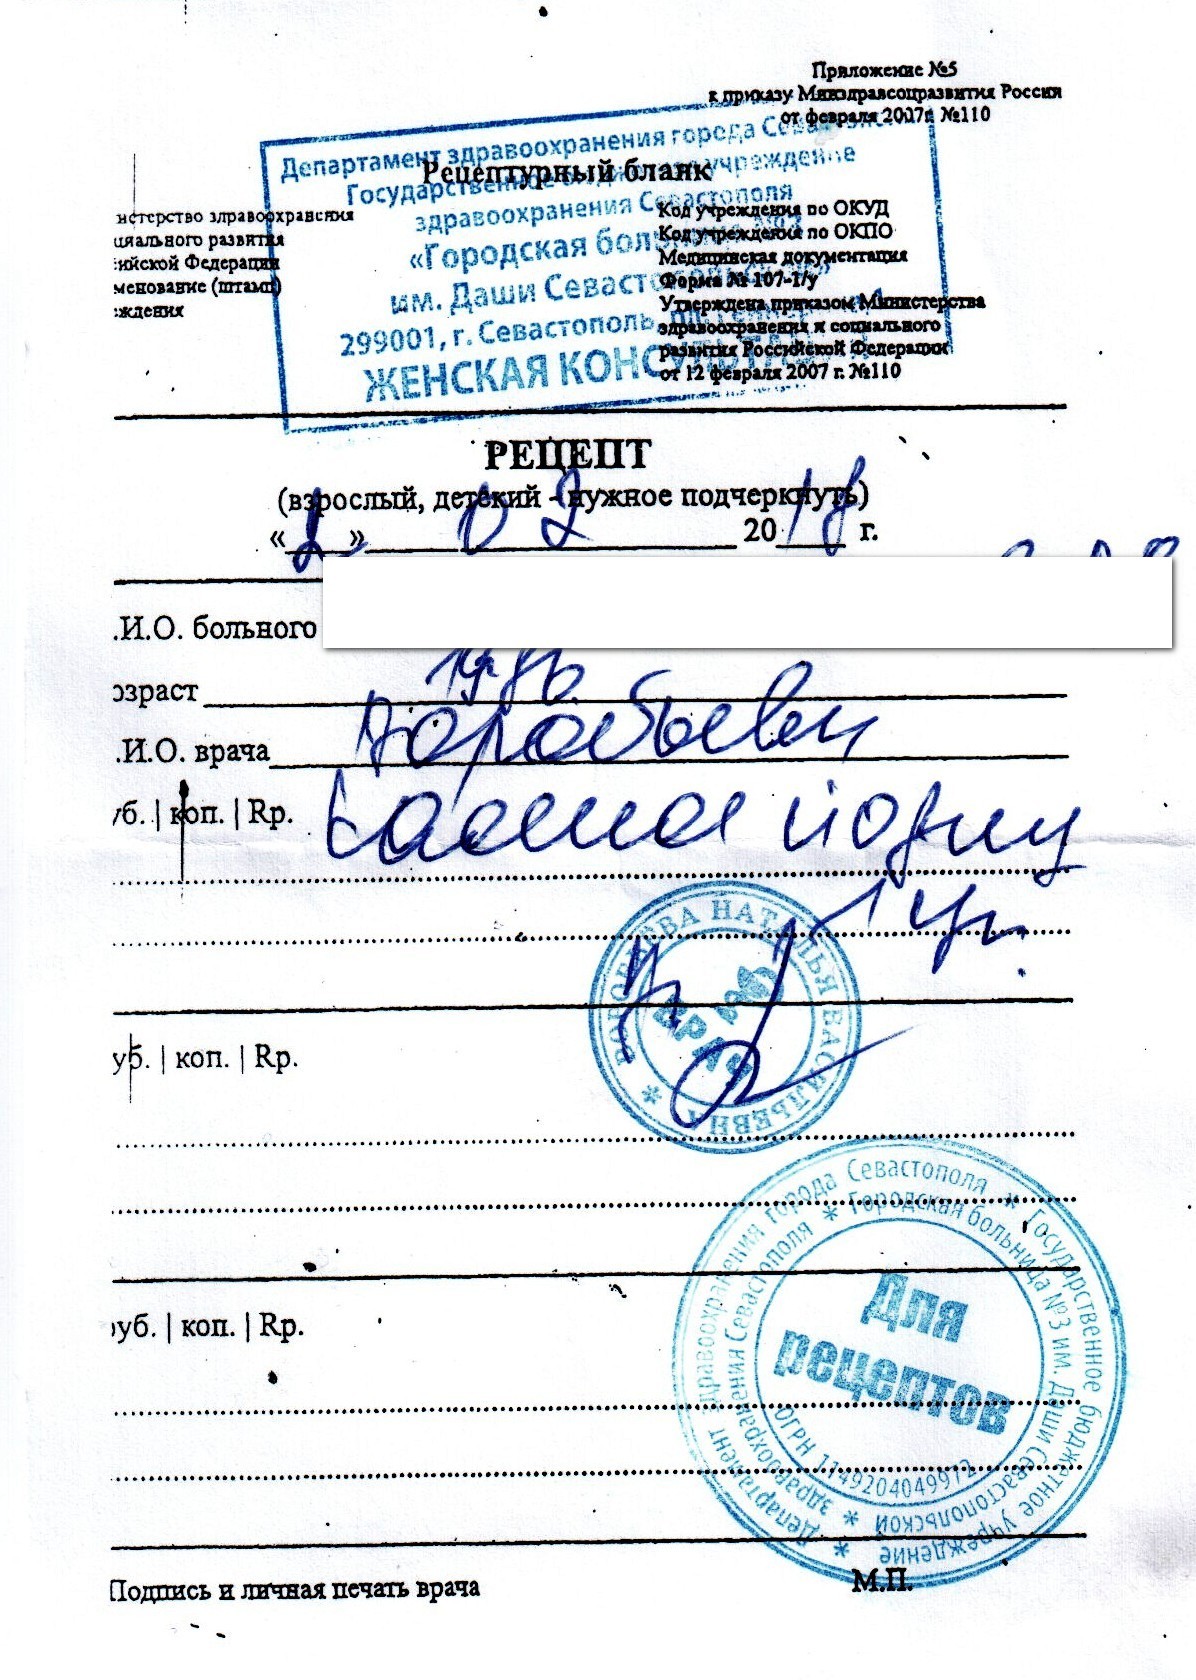 Приложение №5
к приказу Минздравсоцразвития России
от февраля 2007г. №110
Департамент здравоохранения города
Государственное бюджетное учреждение
здравоохранения Севастополя
«Городская больница №3
им. Даши Севастопольской»
299001, г. Севастополь,
ЖЕНСКАЯ КОНСУЛЬТА
Рецептурный бланк
истерство здравоохранения
циального развития
ийской Федерации
менование (штамп)
ждения
Код учреждения по ОКУД
Код учреждения по ОКПО
Медицинская документация
Форма № 107-1/у
Утверждена приказом Министерства
здравоохранения и социального
развития Российской Федерации
от 12 февраля 2007 г. №110
РЕЦЕПТ
(взрослый, детский - нужное подчеркнуть)
«2» 02 2018 г.
.И.О. больного
озраст
.И.О. врача Воробьева
уб. | коп. | Rp.
ВОРОБЬЕВА НАТАЛЬЯ ВАСИЛЬЕВНА
ВРАЧ
уб. | коп. | Rp.
руб. | коп. | Rp.
Департамент здравоохранения города Севастополя * Государственное бюджетное учреждение *
здравоохранения Севастополя * Городская больница №3 им. Даши Севастопольской *
Для
рецептов
ОГРН 1149204049972
Подпись и личная печать врача
М.П.